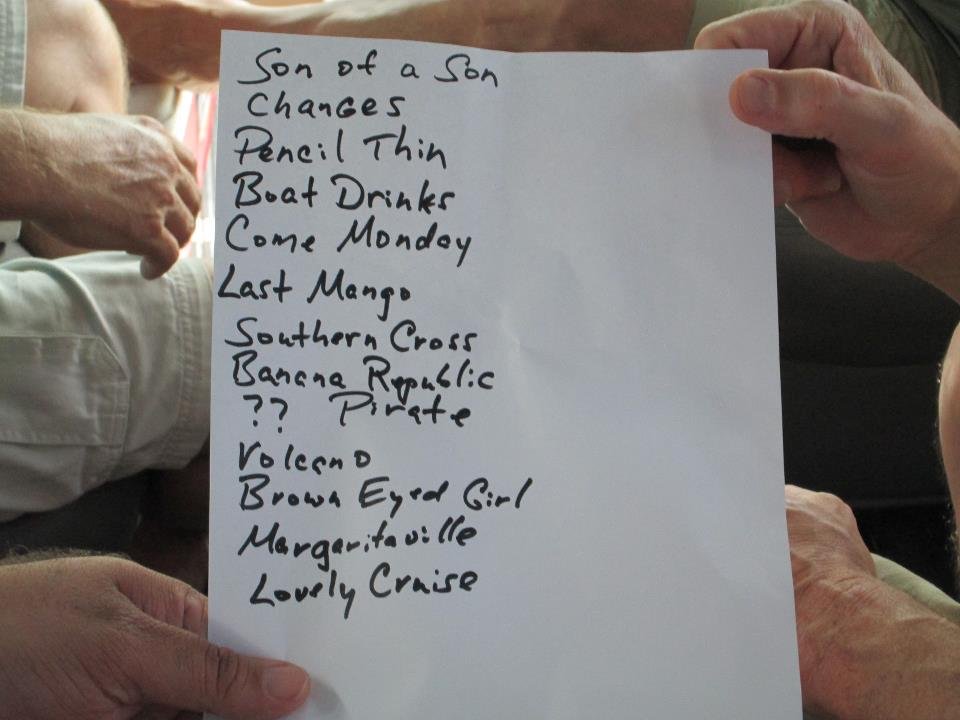 Son of a Son
Changes
Pencil Thin
Boat Drinks
Come Monday
Last Mango
Southern Cross
Banana Republic
?? Pirate
Volcano
Brown Eyed Girl
Margaritaville
Lovely Cruise